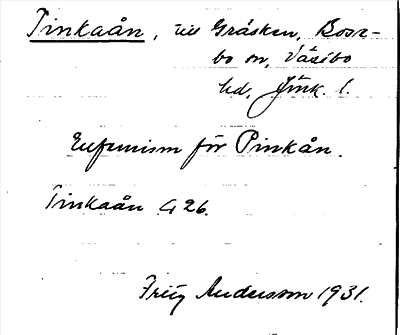 Tinkaån, till Gråsken, Boar-
bo sn, Västbo
hd, Jönk. l.
Eufemism för Pinkån.
Tinkaån G 26.
Fritz Andersson 1931.